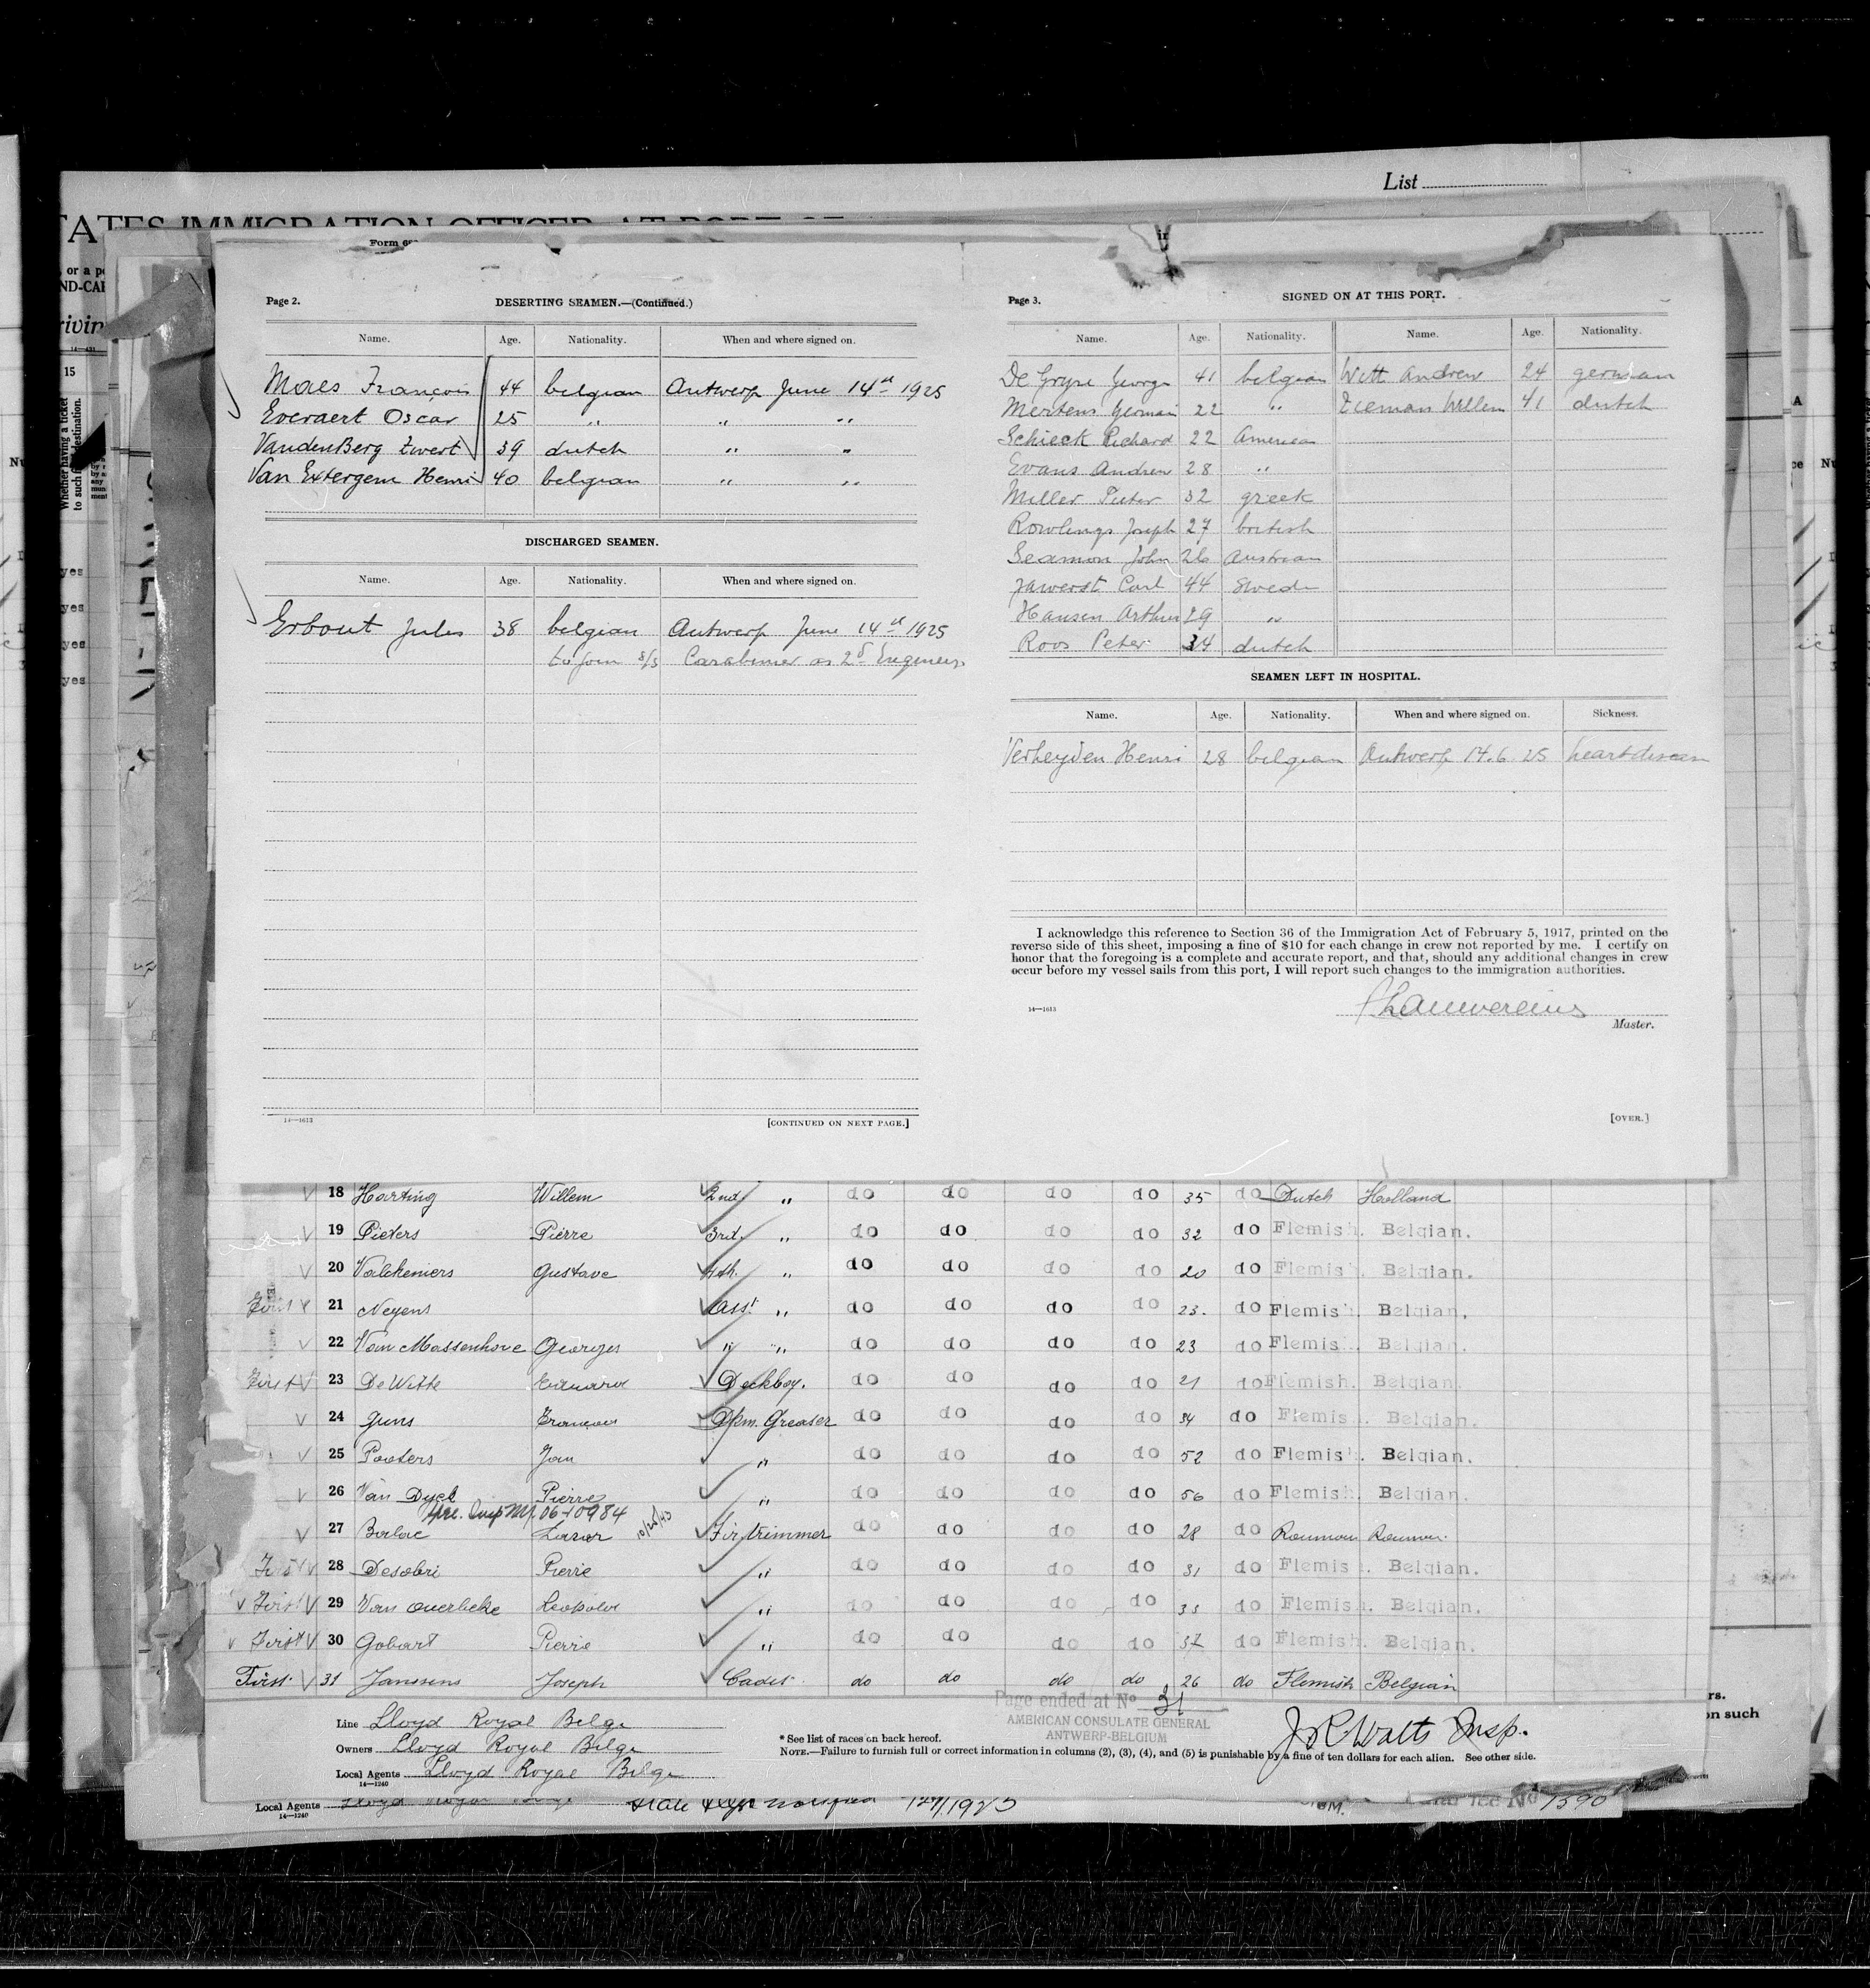 List
TATES IMMIGRATION OFFICER AT PORT OF
Form 68
Page 2.
DESERTING SEAMEN.—(Continued.)
Name. Age. Nationality. When and where signed on.
Maes François 44 belgian Antwerp June 14th 1925
Everaert Oscar 25 " " "
VandenBerg Ewert 39 dutch " "
Van Extergem Henri 40 belgian " "
DISCHARGED SEAMEN.
Name. Age. Nationality. When and where signed on.
Erbout Jules 38 belgian Antwerp June 14th 1925
to join s/s Carabinier as 2d Engineer
14—1613
[CONTINUED ON NEXT PAGE.]
Page 3.
SIGNED ON AT THIS PORT.
Name. Age. Nationality. Name. Age. Nationality.
De Gryse George 41 belgian Witt Andrew 24 german
Mertens Germain 22 " Zieman Willem 41 dutch
Schieck Richard 22 American
Evans Andrew 28 "
Miller Pieter 32 greek
Rowlings Joseph 27 british
Seamon John 26 Austrian
Carl 44 Swede
Hansen Arthur 29 "
Roos Peter 34 dutch
SEAMEN LEFT IN HOSPITAL.
Name. Age. Nationality. When and where signed on. Sickness.
Verheyden Henri 28 belgian Antwerp 14.6.25 heart disease
I acknowledge this reference to Section 36 of the Immigration Act of February 5, 1917, printed on the
reverse side of this sheet, imposing a fine of $10 for each change in crew not reported by me. I certify on
honor that the foregoing is a complete and accurate report, and that, should any additional changes in crew
occur before my vessel sails from this port, I will report such changes to the immigration authorities.
14—1613
Master.
[OVER.]
18 Harting Willem 2nd " do do do do 35 do Dutch Holland
19 Pieters Pierre 3rd. " do do do do 32 do Flemish. Belgian.
20 Valckeniers Gustave 4th. " do do do do 20 do Flemish. Belgian.
First 21 Neyens Asst " do do do do 23. do Flemish. Belgian.
22 Van Massenhove Georges " " do do do do 23 do Flemish. Belgian.
First 23 De Witte Edward Deckboy. do do do do 21 do Flemish. Belgian.
24 Guns François Dkm. Greaser do do do do 34 do Flemish. Belgian.
25 Pooters Jan " do do do do 52 do Flemish. Belgian.
26 Van Dyck Pierre " do do do do 56 do Flemish. Belgian.
27 Balac Lazar 10/25/43 Fir, trimmer do do do do 28 do Rouman Rouman.
First 28 Desobri Pierre " do do do do 31 do Flemish. Belgian.
First 29 Van Ouerbeke Leopold " do do do do 35 do Flemish. Belgian.
First 30 Gobart Pierre " do do do do 37 do Flemish. Belgian.
First 31 Janssens Joseph Cadet do do do do 26 do Flemish Belgian
Page ended at No 31
AMERICAN CONSULATE GENERAL
ANTWERP-BELGIUM
Line Lloyd Royal Belge
Owners Lloyd Royal Belge
Local Agents Lloyd Royal Belge
14—1240
* See list of races on back hereof.
NOTE.—Failure to furnish full or correct information in columns (2), (3), (4), and (5) is punishable by a fine of ten dollars for each alien. See other side.
J R Watts Insp.
Local Agents Lloyd Royal Belge
14—1240
1390